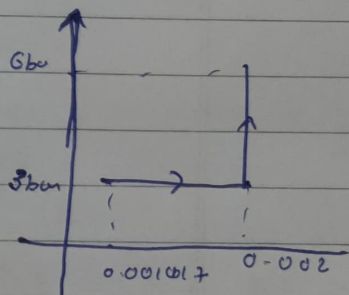 6bar
3bar
0.001017
0-002